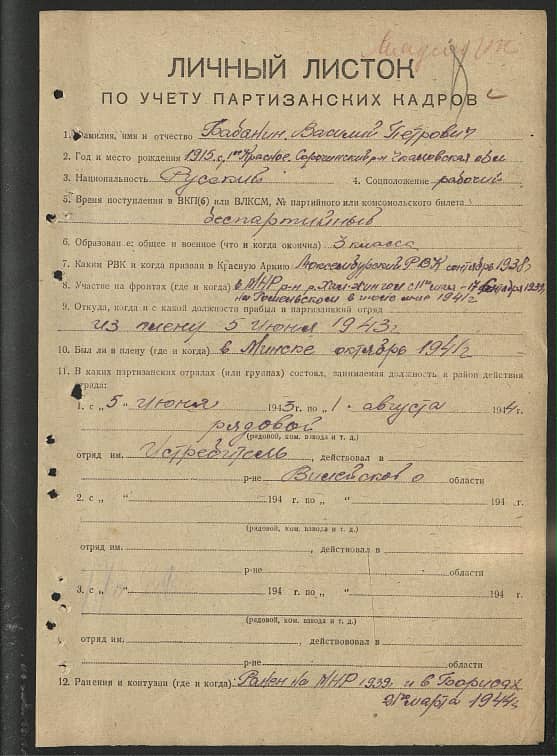 ЛИЧНЫЙ ЛИСТОК
ПО УЧЕТУ ПАРТИЗАНСКИХ КАДРОВ
1. Фамилия, имя и отчество Бабанин Василий Петрович
2. Год и место рождения 1915 с. Красное, Сорочинский р-н Чкаловская обл
3. Национальность Русский 4. Соцположение рабочий
5. Время поступления в ВКП(б) или ВЛКСМ, № партийного или комсомольского билета
беспартийный
6. Образование: общее и военное (что и когда окончил) 3 класса
7. Каким РВК и когда призван в Красную Армию Люксембургский РВК сентябрь 1938г
8. Участие на фронтах (где и когда) в МНР р-н р. Халхин-гол с 11 мая - 1939
в июне м-це 1941г
9. Откуда, когда и с какой должности прибыл в партизанский отряд
из плена 5 июня 1943г
10. Был ли в плену (где и когда) в Минске октябрь 1941г
11. В каких партизанских отрядах (или группах) состоял, занимаемая должность и район действия
отряда:
1. с „5" июня 1943 г. по „1" августа 1944 г.
рядовой
(рядовой, ком. взвода и т. д.)
отряд им. Истребитель, действовал в
р-не Вилейской области
2. с „ " 194 г. по „ " 194 г.
(рядовой, ком. взвода и т. д.)
отряд им. , действовал в
р-не области
3. с „ " 194 г. по „ " 194 г.
(рядовой, ком. взвода и т. д.)
отряд им. , действовал в
р-не области
12. Ранения и контузии (где и когда) Ранен на МНР 1939г. и в
марта 1944г